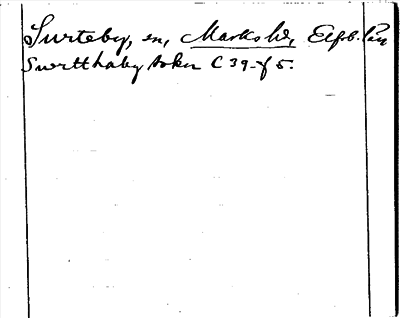 Surteby, sn, Marks hd, Elfsb. län
Swrtthaby sokn C 39-f 5.